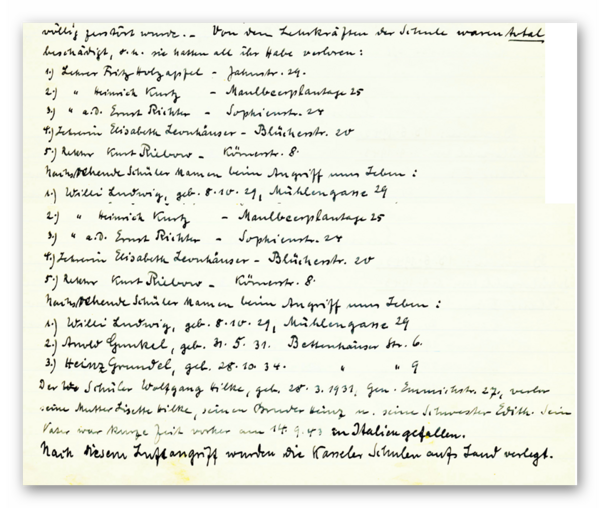 völlig zerstört wurde. – Von den Lehrkräften der Schule waren total
beschädigt, d.h. sie hatten all ihr Habe verloren:
1.) Lehrer Fritz Holzapfel – Jahnstr. 29.
2.) " Heinrich Kurtz – Maulbeerplantage 25
3.) " a.D. Ernst Richter – Sophienstr. 28
4.) Lehrerin Elisabeth Leonhäuser – Blücherstr. 20
5.) Rektor Kurt Riebow – Körnerstr. 8.
Nachstehende Schüler kamen beim Angriff ums Leben:
1.) Willi Ludwig, geb. 8.10.29, Mühlengasse 29
2.) " Heinrich Kurtz – Maulbeerplantage 25
3.) " a.D. Ernst Richter – Sophienstr. 28
4.) Lehrerin Elisabeth Leonhäuser – Blücherstr. 20
5.) Rektor Kurt Riebow – Körnerstr. 8.
Nachstehende Schüler kamen beim Angriff ums Leben:
1.) Willi Ludwig, geb. 8.10.29, Mühlengasse 29
2.) Arnold Gunkel, geb. 31.5.31. Bettenhäuser Str. 6.
3.) Heinz Grundel, geb. 28.10.34. " " 9
Der Schüler Wolfgang Hilke, geb. 28.3.1931, Gen. Emmichstr. 27, verlor
seine Mutter Lisette Hilke, seinen Bruder Heinz u. seine Schwester Edith. Sein
Vater war kurze Zeit vorher am 14.9.43 in Italien gefallen.
Nach diesem Luftangriff wurden die Kasseler Schulen aufs Land verlegt.